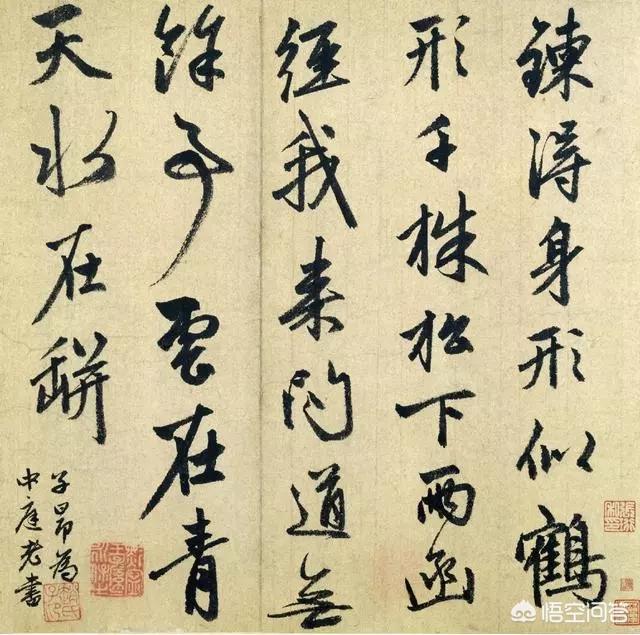 鍊得身形似鶴
形千株松下兩函
經我来問道無
餘事雲在青
天水在缾
子昂為
中庭老書
悟空问答